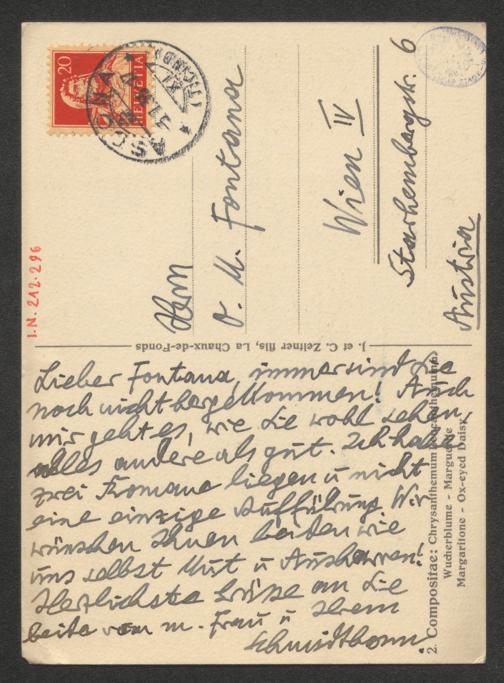 20
HELVETIA
ASCONA
(TICINO)
Herrn
O. M. Fontana
Wien IV
Starhembergstr. 6
Austria
I.N. 212.296
J. et C. Zeltner fils, La Chaux-de-Fonds
Lieber Fontana, immer sind Sie
noch nicht hergekommen! Auch
mir geht es, wie Sie wohl sehen,
alles andere als gut. Ich habe
zwei Romane liegen u nicht
eine einzige Aufführung. Wir
wünschen Ihnen beiden wie
uns selbst Mut u Ausharren!
Herzlichste Grüße an Sie
beide von m. Frau u Ihrem
Schmidtbonn.
2. Compositae: Chrysanthemum
Wucherblume - Marguerite
Margaritone - Ox-eyed Daisy